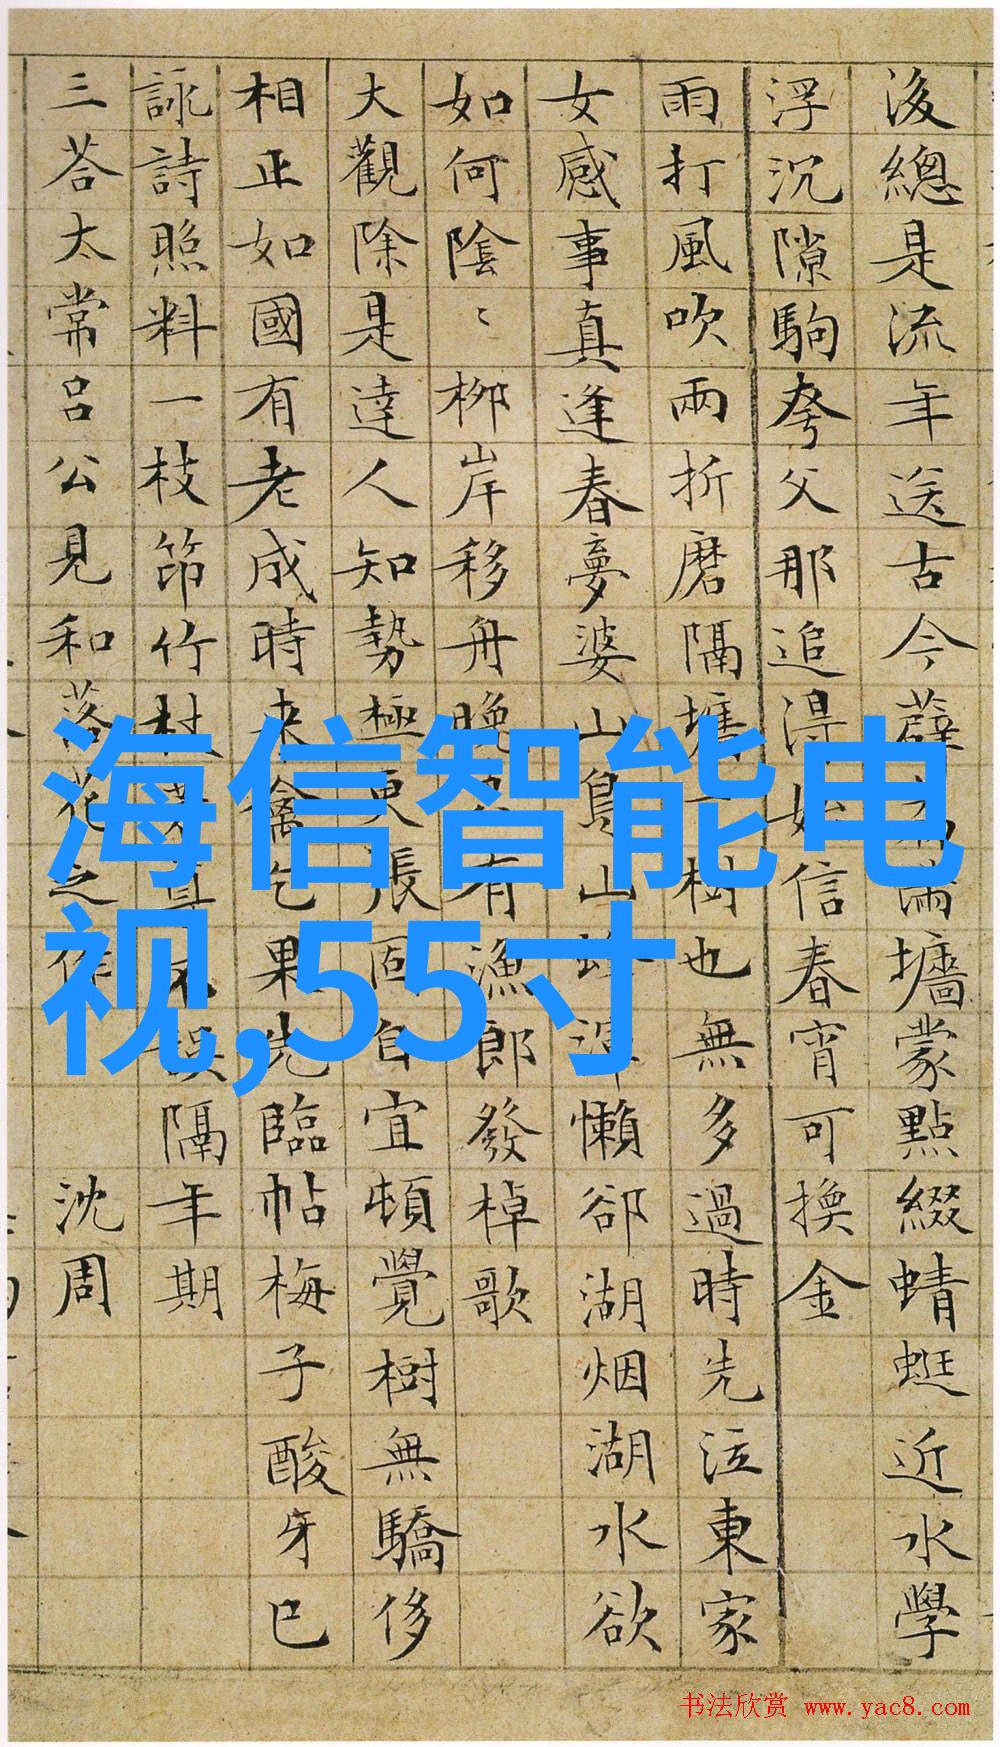 後總是流年送古今薜滿墻蒙點綴蜻蜓近水學
浮沉隙駒夸父那追得信春宵可換金
雨打風吹兩折磨隔墻一樹也無多過時先泣東家
女感事真逢春夢婆山鳥山蜂渾懶卻湖烟湖水欲
如何陰〻柳岸移舟晚有漁郎發棹歌
大觀除是達人知勢極更張固自宜頓覺樹無驕侈
相正如國有老成時來禽乞果先臨帖梅子酸牙已
詠詩照料一枝筇竹杖誤隔年期
三荅太常呂公見和落花之作 沈周
海信智能电
视,55寸
书法欣赏 www.yac8.com